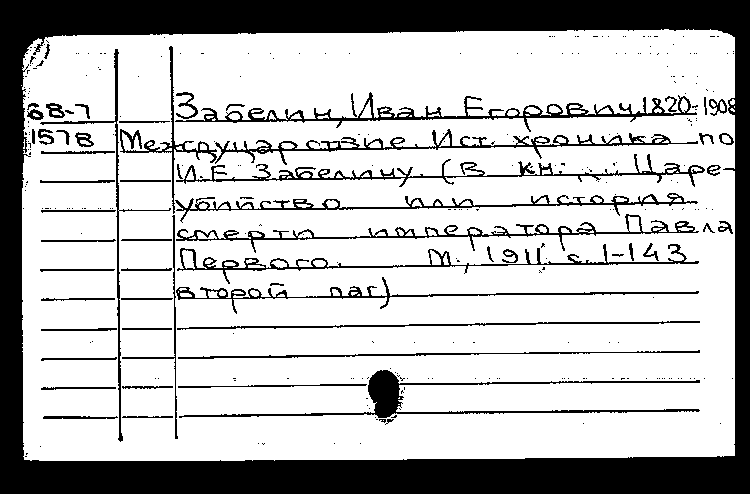 68-7 Забелин, Иван Егорович, 1820-1908
1578 Междуцарствие. Ист. хроника по
И.Е. Забелину. (В кн: ... Царе-
убийство или история
смерти императора Павла
Первого. М., 1911. с. 1-143
второй паг)